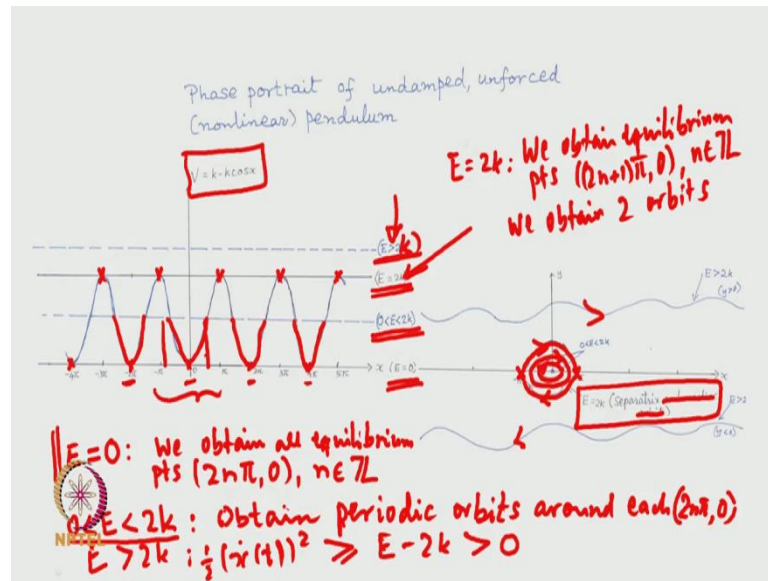 Phase portrait of undamped, unforced
(nonlinear) pendulum
V = k-kcosx
E=2k: We obtain equilibrium
pts ((2n+1)π,0), n∈ℤ
We obtain 2 orbits
(E>2k)
(E=2k)
(0<E<2k)
x (E=0)
-4π -3π -2π -π 0 π 2π 3π 4π 5π
y
E>2k
(y>0)
0<E<2k
x
E=2k (separatrix
E>2
(y<0)
E=0: We obtain all equilibrium
pts (2nπ,0), n∈ℤ
0<E<2k: Obtain periodic orbits around each (2nπ,0)
E>2k: ½(ẋ(t))² ⩾ E-2k > 0
NPTEL